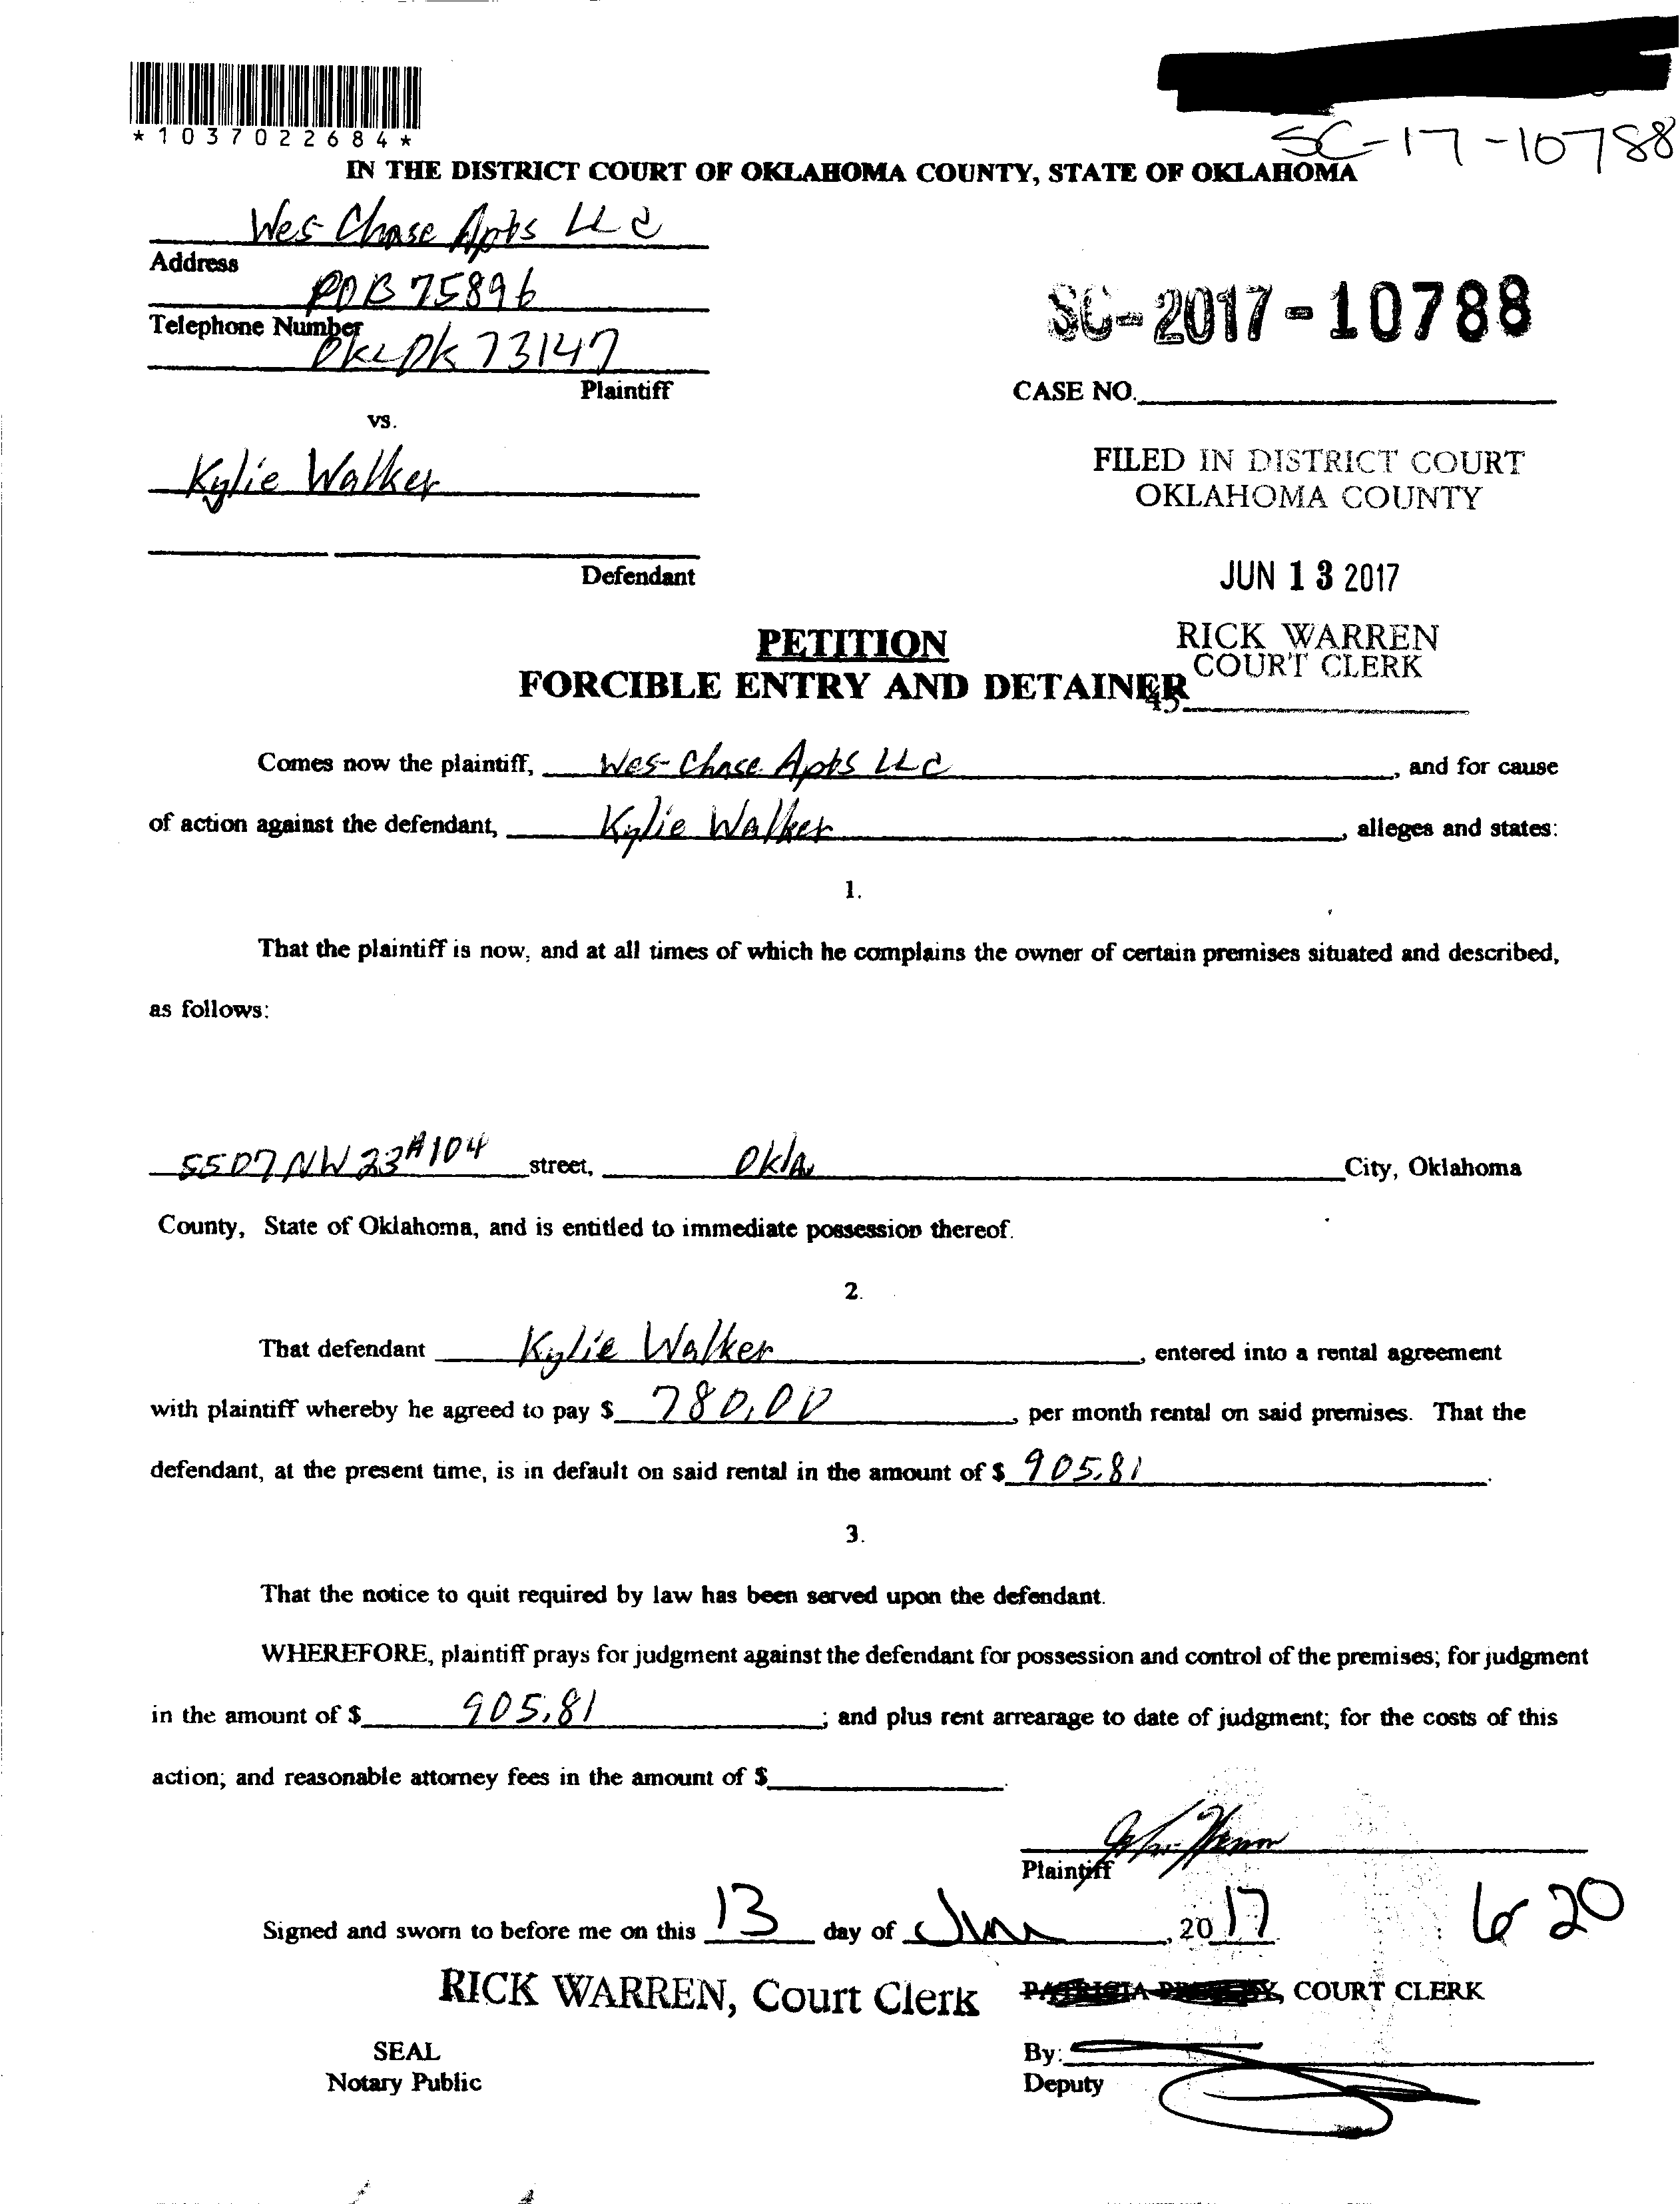 *1037022684*
SC-17-10788
IN THE DISTRICT COURT OF OKLAHOMA COUNTY, STATE OF OKLAHOMA
Wes Chase Apts LLC
Address
POB 75896
Telephone Number
OKLOK 73147
Plaintiff
SC-2017-10788
CASE NO.
vs.
Kylie Walker
Defendant
FILED IN DISTRICT COURT
OKLAHOMA COUNTY
JUN 13 2017
RICK WARREN
COURT CLERK
45
PETITION
FORCIBLE ENTRY AND DETAINER
Comes now the plaintiff, Wes-Chase Apts LLC, and for cause
of action against the defendant, Kylie Walker, alleges and states:
1.
That the plaintiff is now, and at all times of which he complains the owner of certain premises situated and described,
as follows:
5507 NW 23 #104 street, Okla City, Oklahoma
County, State of Oklahoma, and is entitled to immediate possession thereof.
2.
That defendant Kylie Walker, entered into a rental agreement
with plaintiff whereby he agreed to pay $ 780.00, per month rental on said premises. That the
defendant, at the present time, is in default on said rental in the amount of $ 905.81.
3.
That the notice to quit required by law has been served upon the defendant.
WHEREFORE, plaintiff prays for judgment against the defendant for possession and control of the premises; for judgment
in the amount of $ 905.81; and plus rent arrearage to date of judgment; for the costs of this
action; and reasonable attorney fees in the amount of $
Plaintiff
Signed and sworn to before me on this 13 day of Jun, 20 17
6 20
RICK WARREN, Court Clerk
, COURT CLERK
SEAL
Notary Public
By:
Deputy